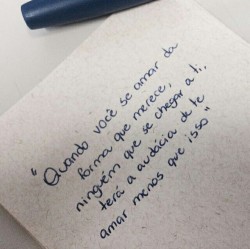 "Quando você se amar da
forma que merece,
ninguém que se chegar a ti,
terá a audácia de te
amar menos que isso"